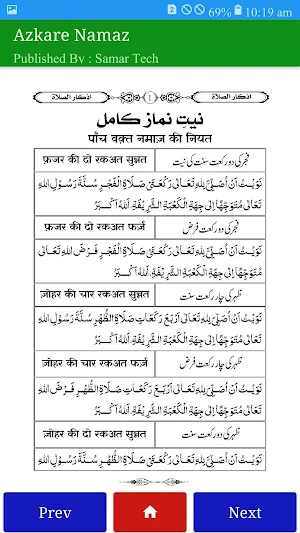 69% 10:19 am
Azkare Namaz
Published By : Samar Tech
اذکار الصلاۃ 1 اذکار الصلاۃ
نیتِ نماز کامل
पाँच वक़्त नमाज़ की नियत
फ़जर की दो रकअत सुन्नत فجر کی دو رکعت سنت کی نیت
نَوَيْتُ اَنْ اُصَلِّيَ لِلّٰهِ تَعَالٰى رَكْعَتَيْ صَلَاةِ الْفَجْرِ سُنَّةَ رَسُوْلِ اللهِ
تَعَالٰى مُتَوَجِّهًا اِلٰى جِهَةِ الْكَعْبَةِ الشَّرِيْفَةِ اَللهُ اَكْبَرُ
फ़जर की दो रकअत फर्ज़ فجر کی دو رکعت فرض
نَوَيْتُ اَنْ اُصَلِّيَ لِلّٰهِ تَعَالٰى رَكْعَتَيْ صَلَاةِ الْفَجْرِ فَرْضَ اللهِ تَعَالٰى
مُتَوَجِّهًا اِلٰى جِهَةِ الْكَعْبَةِ الشَّرِيْفَةِ اَللهُ اَكْبَرُ
ज़ोहर की चार रकअत सुन्नत ظہر کی چار رکعت سنت
نَوَيْتُ اَنْ اُصَلِّيَ لِلّٰهِ تَعَالٰى اَرْبَعَ رَكَعَاتِ صَلَاةِ الظُّهْرِ سُنَّةَ رَسُوْلِ اللهِ
تَعَالٰى مُتَوَجِّهًا اِلٰى جِهَةِ الْكَعْبَةِ الشَّرِيْفَةِ اَللهُ اَكْبَرُ
ज़ोहर की चार रकअत फर्ज़ ظہر کی چار رکعت فرض
نَوَيْتُ اَنْ اُصَلِّيَ لِلّٰهِ تَعَالٰى اَرْبَعَ رَكَعَاتِ صَلَاةِ الظُّهْرِ فَرْضَ اللهِ
تَعَالٰى مُتَوَجِّهًا اِلٰى جِهَةِ الْكَعْبَةِ الشَّرِيْفَةِ اَللهُ اَكْبَرُ
ज़ोहर की दो रकअत सुन्नत ظہر کی دو رکعت سنت
نَوَيْتُ اَنْ اُصَلِّيَ لِلّٰهِ تَعَالٰى رَكْعَتَيْ صَلَاةِ الظُّهْرِ سُنَّةَ رَسُوْلِ اللهِ
Prev Next